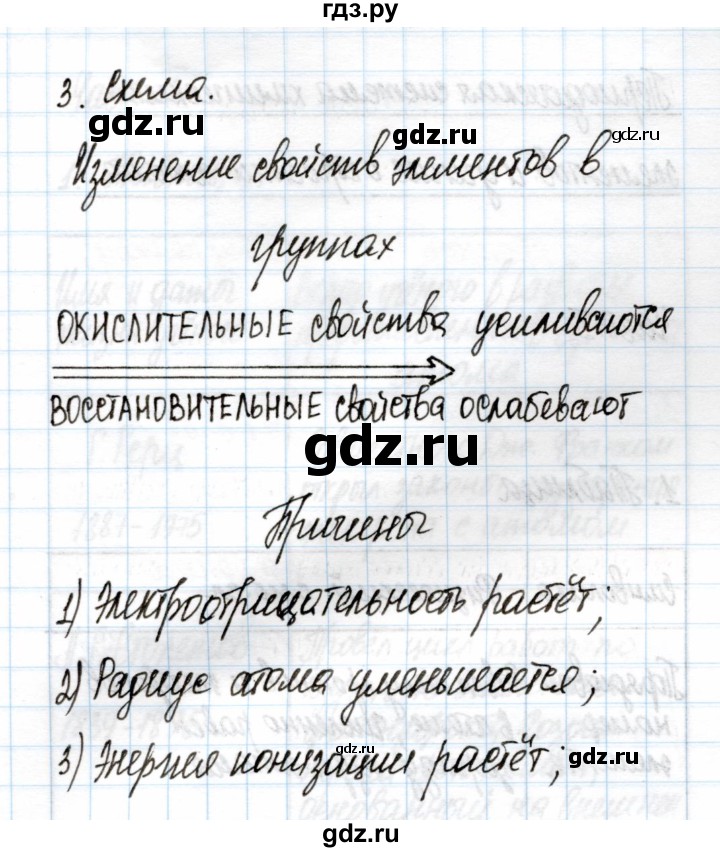 гдз.ру
3. Схема.
gdz.ru
gdz.ru
gdz.ru
Изменение свойств элементов в
группах
ОКИСЛИТЕЛЬНЫЕ свойства усиливаются
ВОССТАНОВИТЕЛЬНЫЕ свойства ослабевают
gdz.ru
Причины
1) Электроотрицательность растёт;
2) Радиус атома уменьшается;
gdz.ru
gdz.ru
3) Энергия ионизации растёт;
gdz.ru